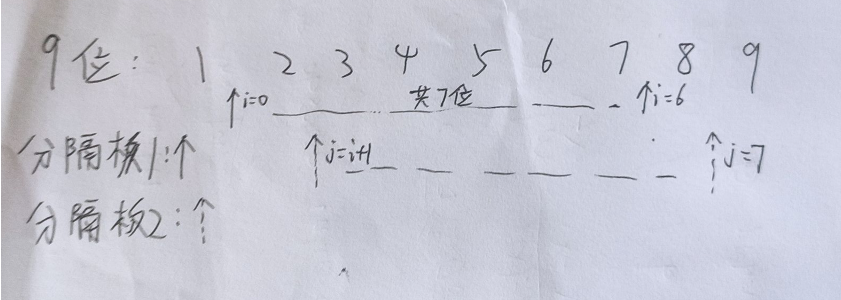 9位: 1 2 3 4 5 6 7 8 9
↑i=0 共7位 ↑i=6
分隔板1:↑ ↑j=i+1 ↑j=7
分隔板2:↑